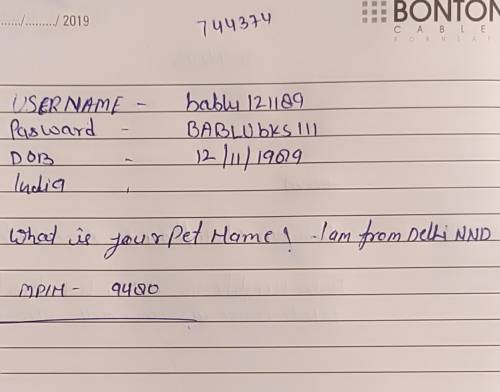 ....../........./ 2019 744374 BONTON
CABLE
USERNAME - bablu121189
Pasward - BABLUbKS111
DOB - 12/11/1989
India
What is your Pet Name! I am from Delhi NND
MPIN - 9480